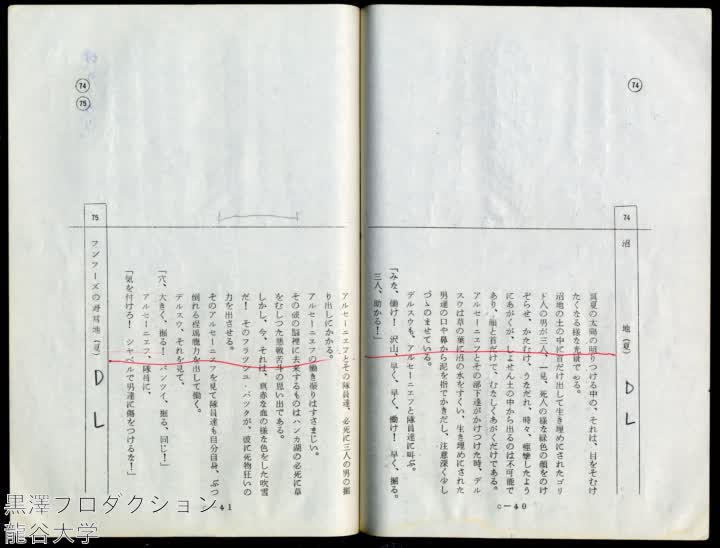 74
74
沼 地(夏)
D L
真夏の太陽の照りつける中の、それは、目をそむけ
たくなる様な光景である。
沼地の土の中に首だけ出して生き埋めにされたゴリ
ド人の男が三人、一見、死人の様な緑色の顔をのけ
ぞらせ、かたむけ、うなだれ、時々、痙攣したよう
にあがくが、しょせん土の中から出るのは不可能で
あり、顔と首だけで、むなしくあがくだけである。
アルセーニエフとその部下達がかけつけた時、デル
スウは草の葉に沼の水をすくい、生き埋めにされた
男達の口や鼻から泥を指でかきだし、注意深く少し
づゝのませている。
デルスウも、アルセーニエフと隊員達に叫ぶ。
「みな、働け! 沢山、早く、早く、働け! 早く、掘る。
三人、助かる!」
c—40
74
75
アルセーニエフとその隊員達、必死に三人の男の掘
り出しにかかる。
アルセーニエフの働き振りはすさまじい。
その彼の脳裡に去来するものはハンカ湖の必死に草
をむしった悪戦苦斗の思い出である。
しかし、今、それは、真赤な血の様な色をした吹雪
だ! そのフラッシュ・バックが、彼に死物狂いの
力を出させる。
そのアルセーニエフを見て隊員達も自分自身、ぶっ
倒れる程馬鹿力を出して働く。
デルスウ、それを見て、
「穴、大きく、掘る! パンツイ、掘る、同じ!」
アルセーニエフ、隊員に、
「気を付けろ! シャベルで男達に傷をつけるな!」
75
フンフーズの
地(夏)
D L
41
黒澤プロダクション
龍谷大学